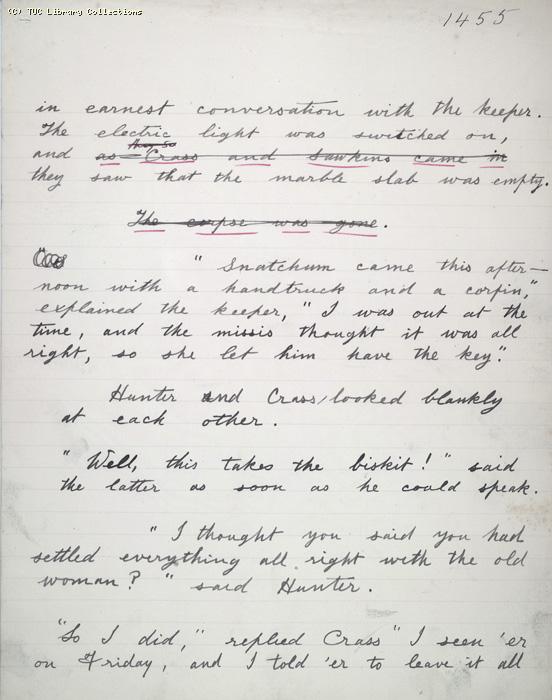 (C) TUC Library Collections
1455
in earnest conversation with the keeper.
The electric light was switched on,
and as Crass and Sawkins came in
they saw that the marble slab was empty.
The corpse was gone.
"Snatchum came this after—
noon with a handtruck and a corfin,"
explained the keeper, "I was out at the
time, and the missis thought it was all
right, so she let him have the key".
Hunter and Crass looked blankly
at each other.
"Well, this takes the biskit!" said
the latter as soon as he could speak.
"I thought you said you had
settled everything all right with the old
woman?" said Hunter.
"So I did," replied Crass "I seen 'er
on Friday, and I told 'er to leave it all